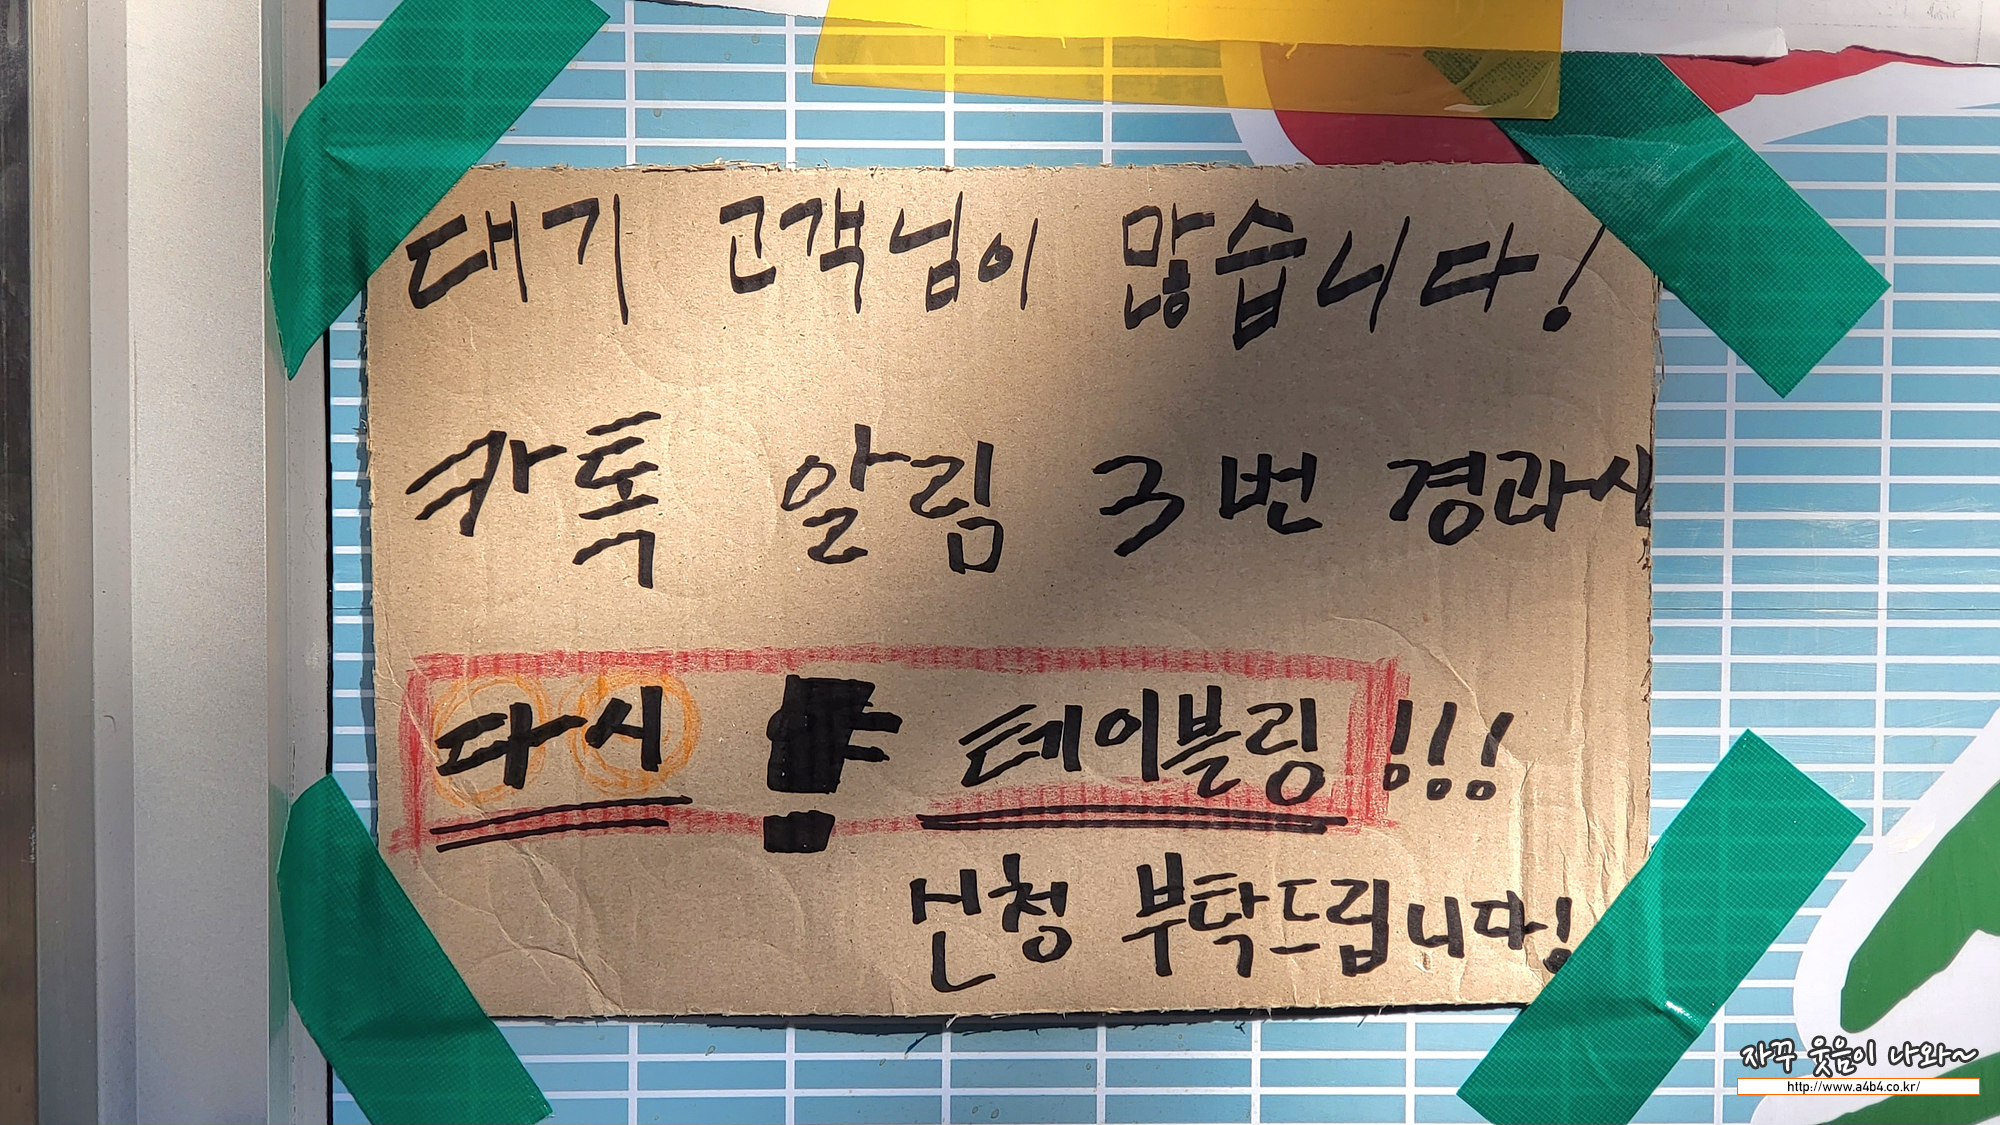 대기 고객님이 많습니다!
카톡 알림 3번 경과시
다시 테이블링!!!
신청 부탁드립니다!
자꾸 웃음이 나와~
http://www.a4b4.co.kr/